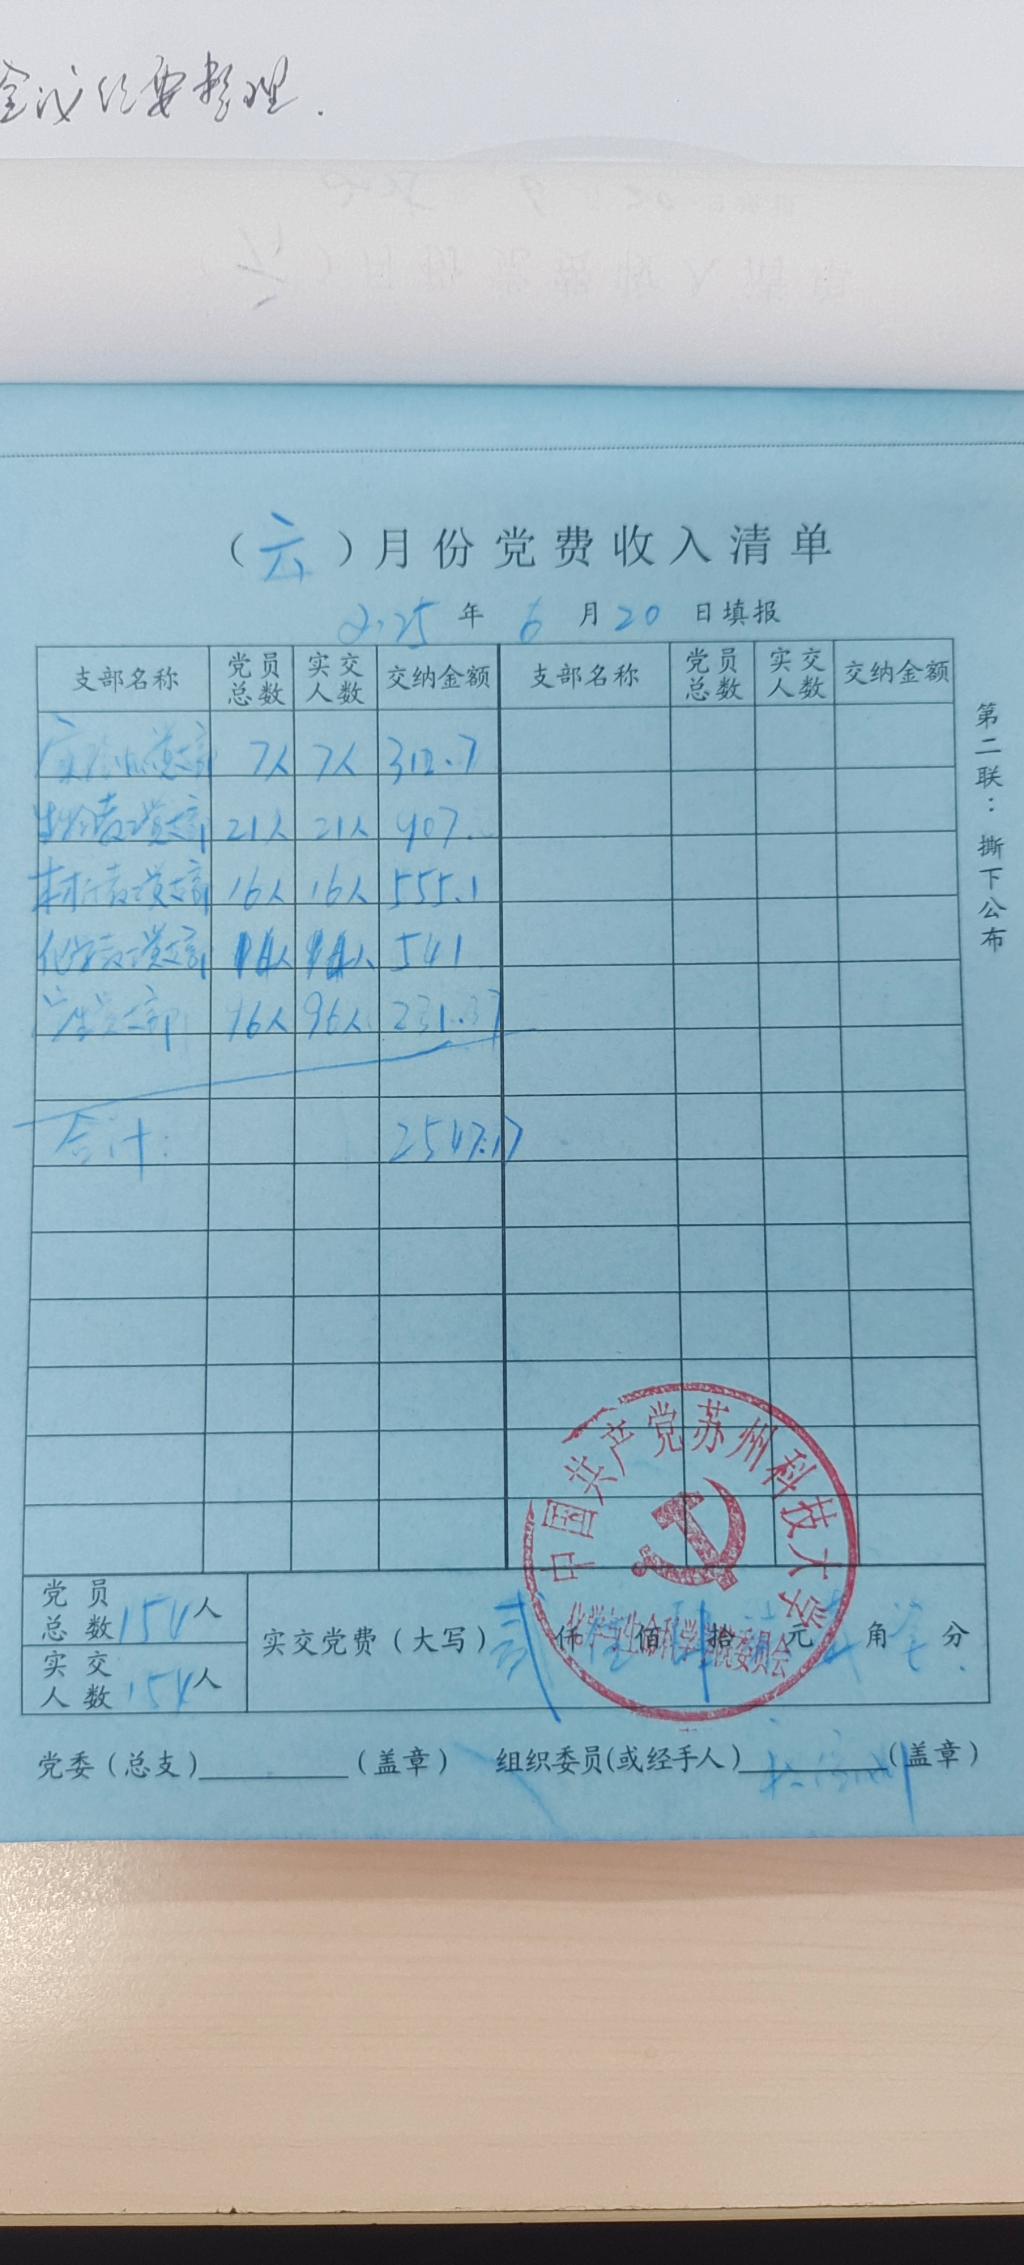 会议纪要整理.
(六)月份党费收入清单
2025年6月20日填报
支部名称 党员总数 实交人数 交纳金额 支部名称 党员总数 实交人数 交纳金额
党支部 7人 7人 312.7
生物教工党支部 21人 21人 907.
材料教工党支部 16人 16人 555.1
化学教工党支部 541
学生党支部 96人 96人 231.37
合计: 2547.17
第二联:撕下公布
党员总数154人
实交人数154人
实交党费(大写)贰仟伍佰肆拾元角分
党委(总支)(盖章) 组织委员(或经手人)(盖章)
中国共产党苏州科技大学
化学与生命科学学院委员会